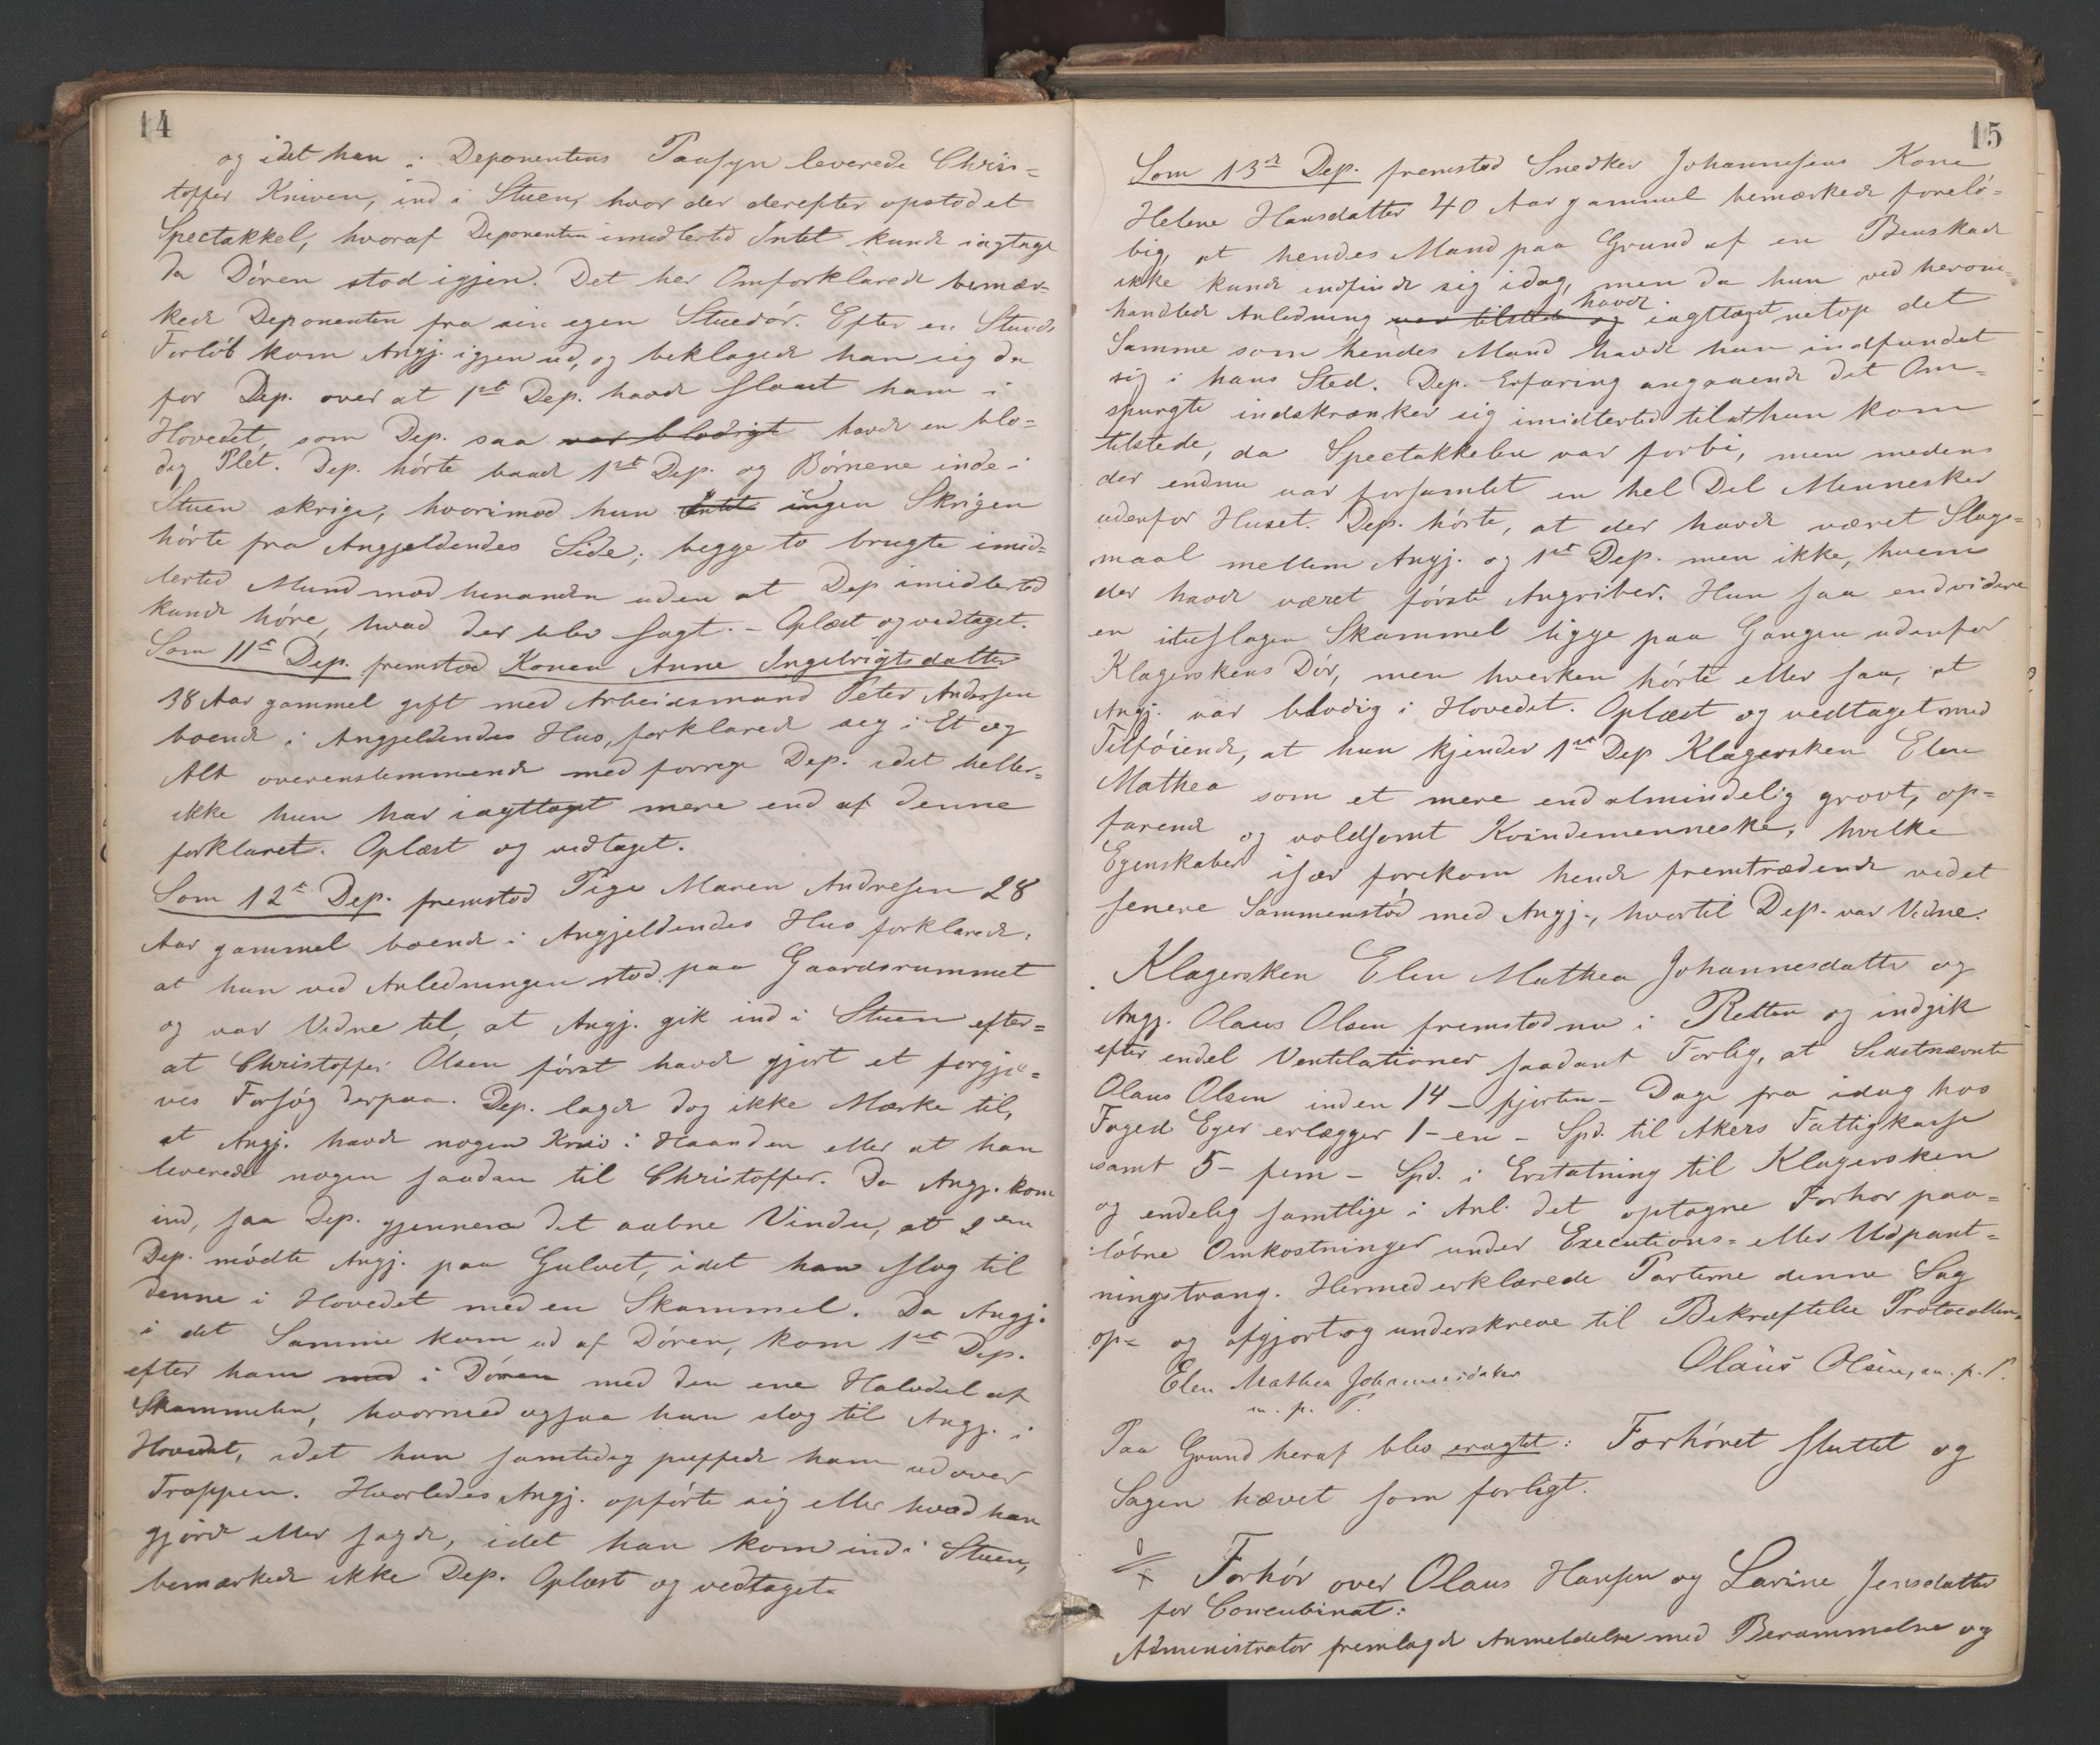 14
og idet han i Deponentens Paasyn leverede Chris=
toffer Kniven, ind i Stuen, hvor der derefter opstod et
Spectakkel, hvoraf Deponenten imidlertid Intet kunde iagtage
da Dören stod igjen. Det her Omforklarede bemær-
kede Deponenten fra sin egen Stuedör. Efter en Stunds
Forlöb kom Angj. igjen ud, og beklagede han sig da
for Dep. over at 1st Dep. havde slaaet ham i
Hovedet, som Dep. saa var blodigt havde en blo=
dig Plet. Dep. hörte baade 1st Dep. og Börnene inde i
Stuen skrige, hvorimod hun Intet ingen Skrigen
hörte fra Angjeldendes Side; begge to brugte imid=
lertid Mund mod hinanden uden at Dep imidlertid
kunde höre, hvad der blev sagt. - Oplæst og vedtaget.
Som 11te Dep. fremstod Konen Anne Ingebrigtsdatter
38 Aar gammel gift med Arbeidsmand Peter Andersen
boende i Angjeldendes Hus, forklarede sig i Et og
Alt overenstemmende med forrige Dep. idet heller=
ikke hun har iagttaget mere end af denne
forklaret. Oplæst og vedtaget.
Som 12te Dep. fremstod Pige Maren Andresen 28
Aar gammel boende i Angjeldendes Hus forklarede:
at hun ved Anledningen stod paa Gaardsrummet
og var Vidne til, at Angj. gik ind i Stuen efter=
at Christoffer Olsen först havde gjort et forgjæ=
ves Forsög derpaa. Dep. lagde dog ikke Mærke til,
at Angj. havde nogen Kniv i Haanden eller at han
leverede nogen saadan til Christoffer. Da Angj. kom
ind, saa Dep. gjennem det aabne Vindu, at 2en
Dep. mödte Angj. paa Gulvet, idet han slog til
denne i Hovedet med en Skammel. Da Angj.
i det Samme kom ud af Dören, kom 1st Dep.
efter ham med i Dören med den ene Halvdel af
Skammelen, hvormed ogsaa hun slog til Angj. i
Hovedet, idet hun samtidig puffede ham ud over
Trappen. Hvorledes Angj. opförte sig eller hvad han
gjörde eller sagde, idet han kom ind i Stuen,
bemærkede ikke Dep. Oplæst og vedtaget.
15
Som 13de Dep. fremstod Snedker Johannesens Kone
Helene Hansdatter 40 Aar gammel bemærkede forelö=
big, at hendes Mand paa Grund af en Benskade
ikke kunde indfinde sig idag, men da hun ved herom=
handlede Anledning var tilstede og havde iagttaget netop det
Samme som hendes Mand havde hun indfundet
sig i hans Sted. Dep. Erfaring angaaende det Om=
spurgte indskrænker sig imidlertid til at hun kom
tilstede, da Spectakkelen var forbi, men medens
der endnu var forsamlet en hel Del Mennesker
udenfor Huset. Dep. hörte, at der havde været Slags=
maal mellem Angj. og 1st Dep. men ikke, hvem
der havde været förste Angriber. Hun saa endvidere
en ituslagen Skammel ligge paa Gangen udenfor
Klagerskens Dör, men hverken hörte eller saa, at
Angj. var blodig i Hovedet. Oplæst og vedtaget med
Tilföiende, at hun kjender 1st Dep Klagersken Elen
Mathea som et mere end almindelig grovt, op=
farende og voldsomt Kvindemenneske, hvilke
Egenskaber især forekom hende fremtrædende ved et
senere Sammenstöd med Angj., hvortil Dep. var Vidne.
Klagersken Elen Mathea Johannesdatter og
Angj. Olaus Olsen fremstod nu i Retten og indgik
efter endel Ventilationer saadant Forlig, at Sidstnævnte
Olaus Olsen inden 14 - fjorten - Dage fra idag hos
Foged Eger erlægger 1 - en - Spd. til Akers Fattigkasse
samt 5 - fem - Spd. i Erstatning til Klagersken
og endelig samtlige i Anl. det optagne Forhör paa=
löbne Omkostninger under Executions= eller Udpant=
ningstvang. Hermed erklærede Parterne denne Sag
op= og afgjort og underskreve til Bekræftelse Protocollen.
Elen Mathea Johannesdater Olaüs Olsen, m. p. P.
m. p. P.
Paa Grund heraf blev eragtet: Forhöret sluttet og
Sagen hævet som forligt.
Forhör over Olaus Hansen og Larine Jensdatter
for Concubinat:
Administrator fremlagde Anmeldelse med Berammelse og